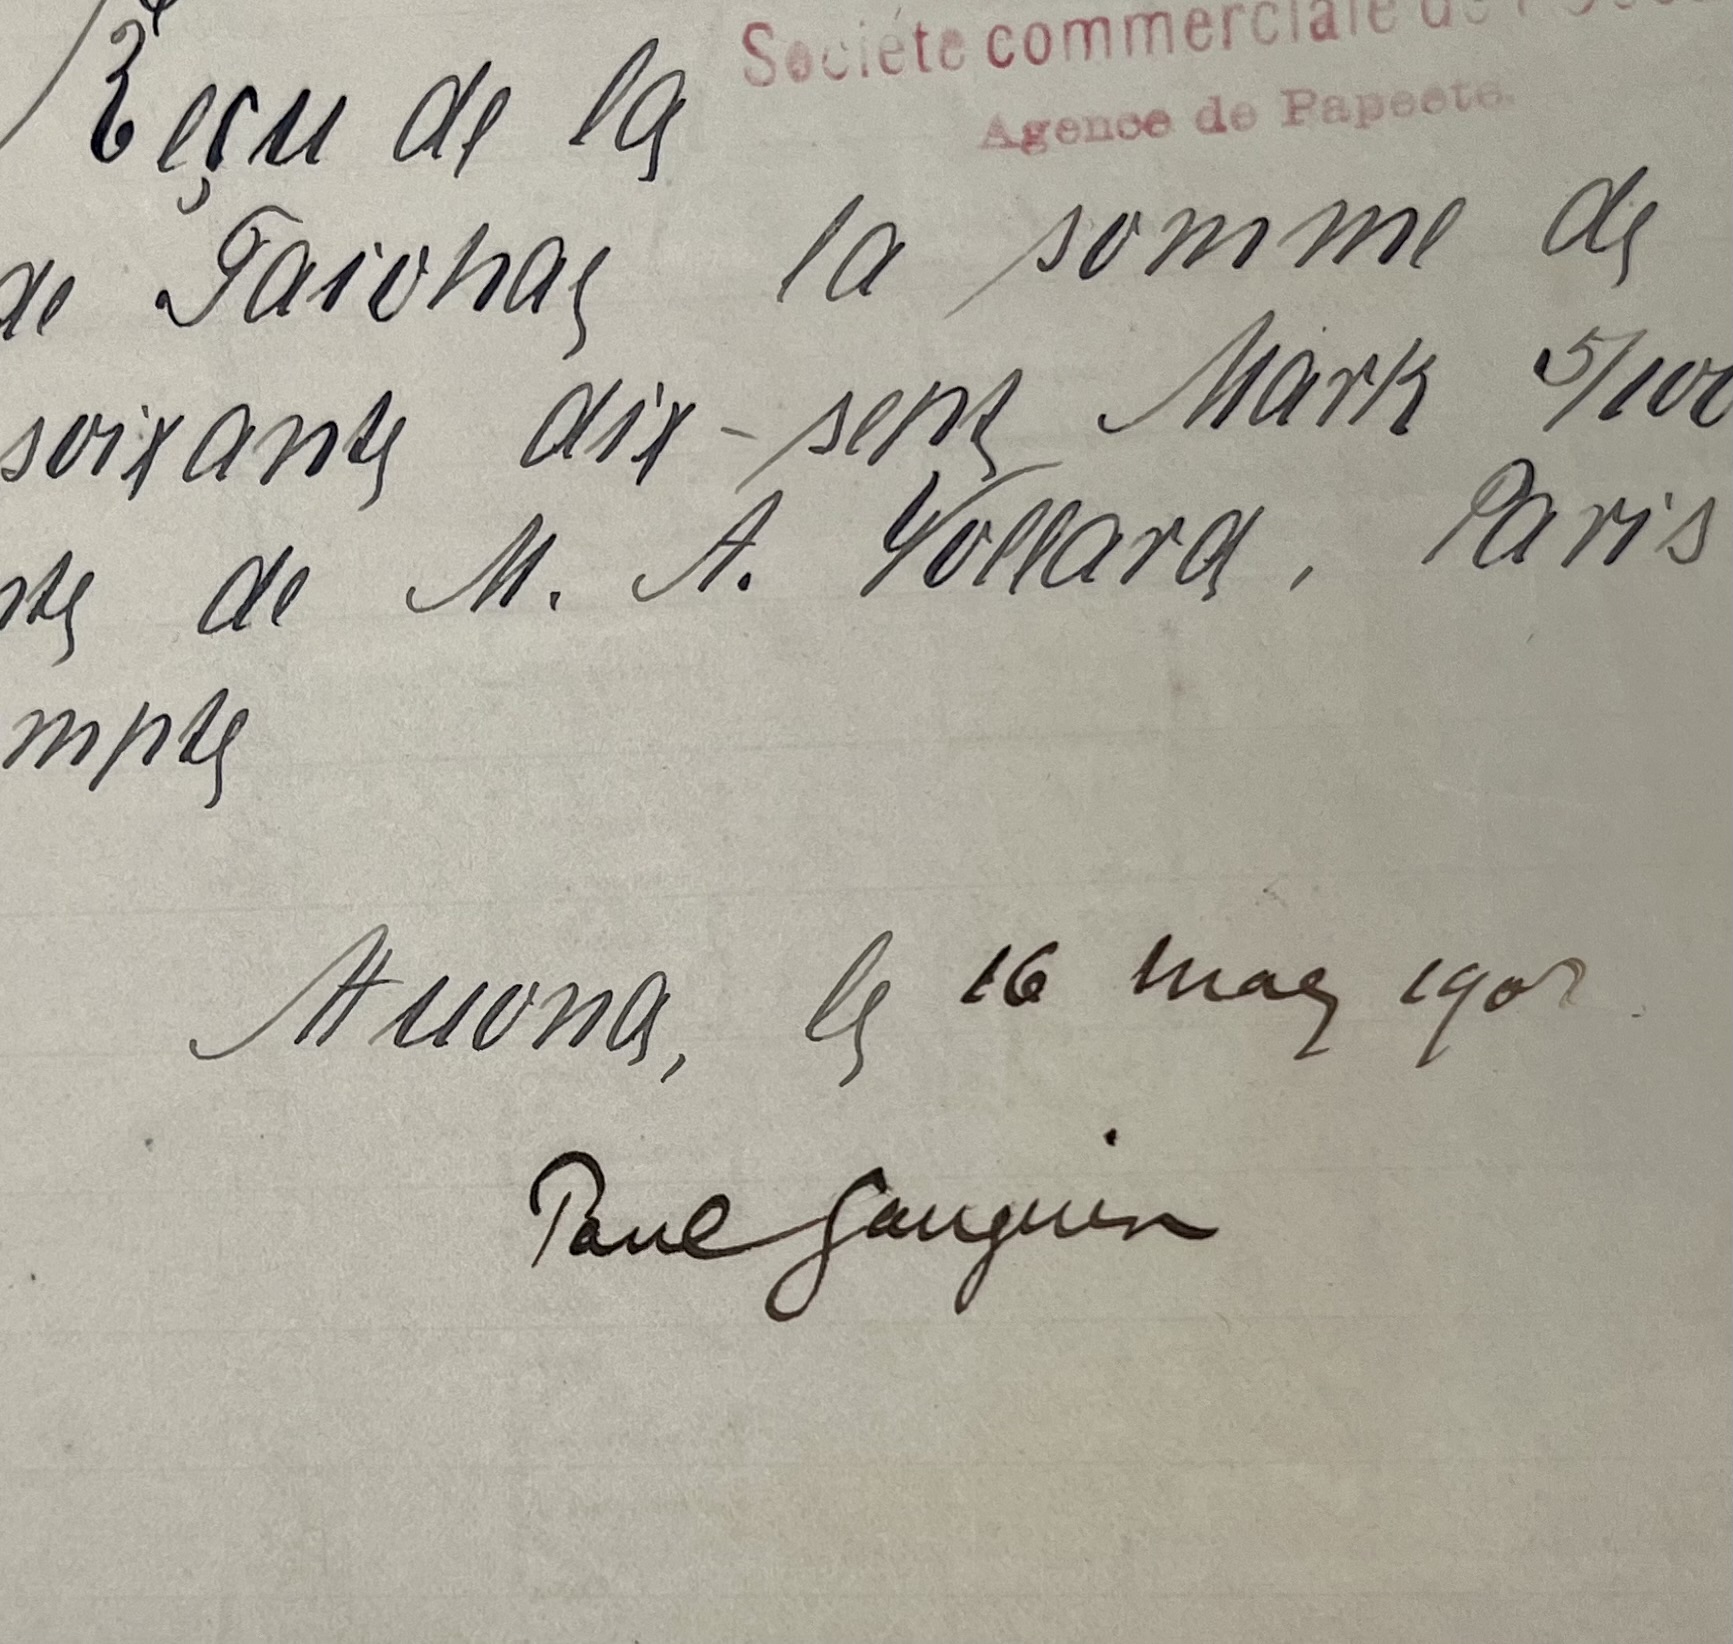 Société commerciale de l'Océ
Reçu de la
Agence de Papeete.
de Taiohae la somme de
soixante dix-sept Mark 5/100
de M. A. Vollard, Paris
mpte
Atuona, le 16 mars
Paul Gauguin